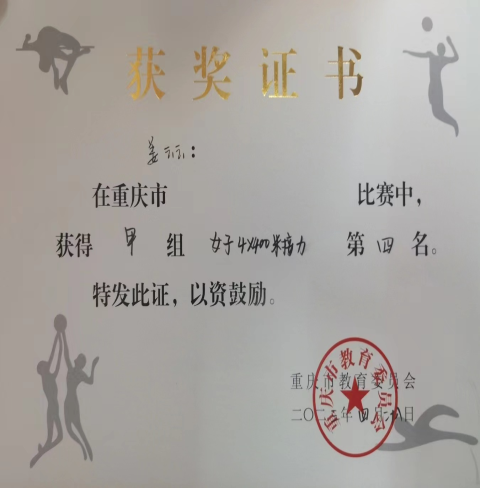 获奖证书
姜示示：
在重庆市 比赛中，
获得 甲 组 女子4×400米接力 第 四 名。
特发此证，以资鼓励。
重庆市教育委员会
二〇二二年四月 日
重庆市教育委员会